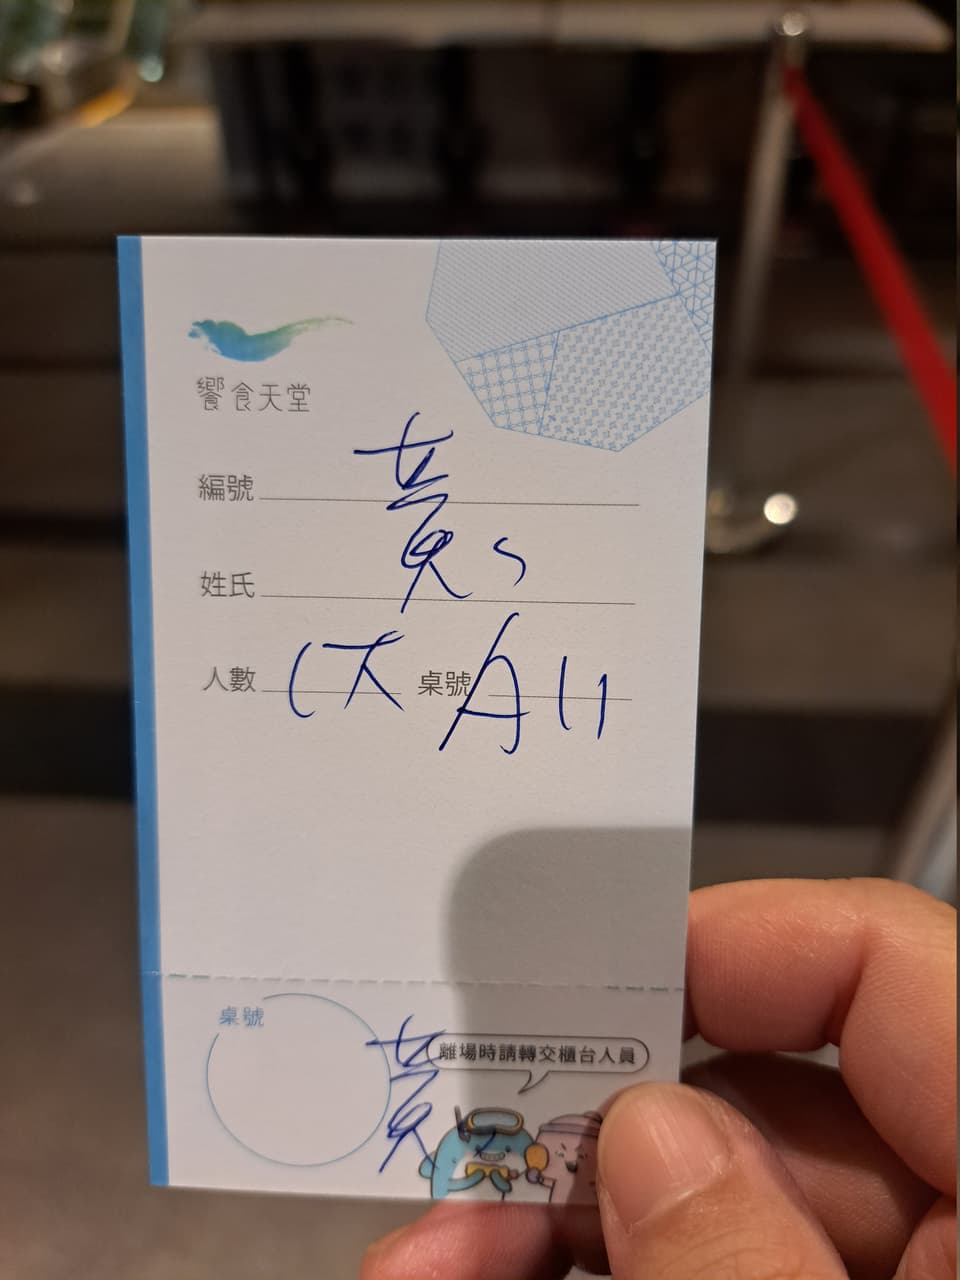 饗食天堂
編號
姓氏 黃s
人數 1大 桌號 A11
桌號
黃
離場時請轉交櫃台人員